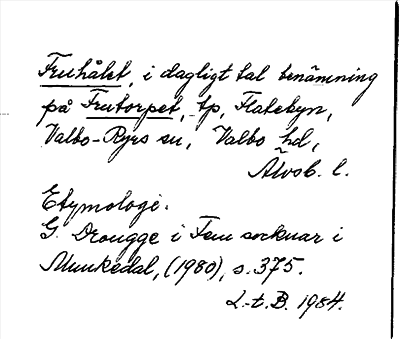 Fruhålet, i dagligt tal benämning
på Frutorpet, tp, Flatebyn,
Valbo-Ryrs sn, Valbo hd,
Älvsb. l.
Etymologi.
G. Drougge i Fem socknar i
Munkedal, (1980), s. 375.
L-t. B. 1984.